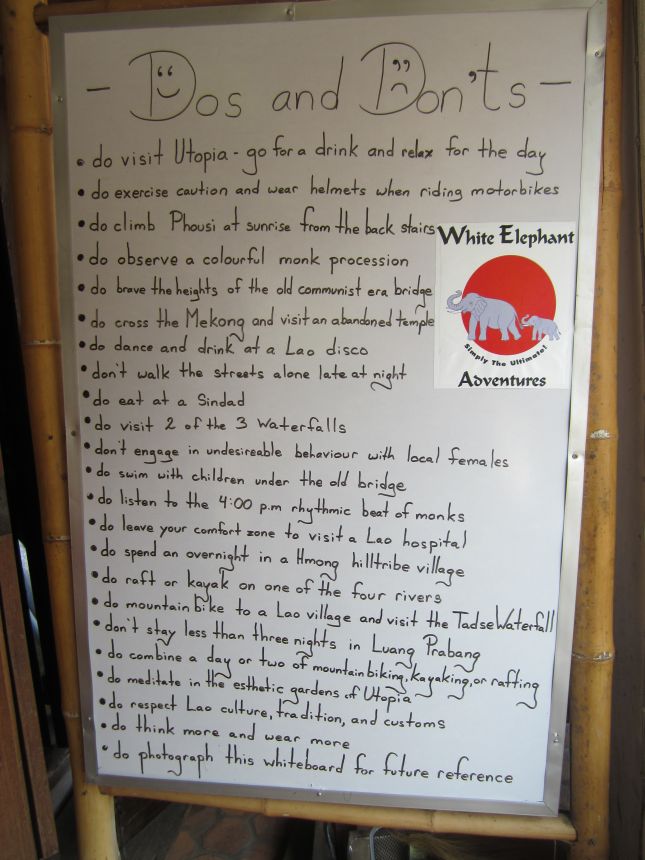 - Dos and Don'ts -
• do visit Utopia - go for a drink and relax for the day
• do exercise caution and wear helmets when riding motorbikes
• do climb Phousi at sunrise from the back stairs
• do observe a colourful monk procession
• do brave the heights of the old communist era bridge
• do cross the Mekong and visit an abandoned temple
• do dance and drink at a Lao disco
• don't walk the streets alone late at night
• do eat at a Sindad
• do visit 2 of the 3 waterfalls
• don't engage in undesireable behaviour with local females
• do swim with children under the old bridge
• do listen to the 4:00 p.m rhythmic beat of monks
• do leave your comfort zone to visit a Lao hospital
• do spend an overnight in a Hmong hilltribe village
• do raft or kayak on one of the four rivers
• do mountain bike to a Lao village and visit the Tadse Waterfall
• don't stay less than three nights in Luang Prabang
• do combine a day or two of mountain biking, kayaking, or rafting
• do meditate in the esthetic gardens of Utopia
• do respect Lao culture, tradition, and customs
• do think more and wear more
• do photograph this whiteboard for future reference
White Elephant
Simply The Ultimate!
Adventures